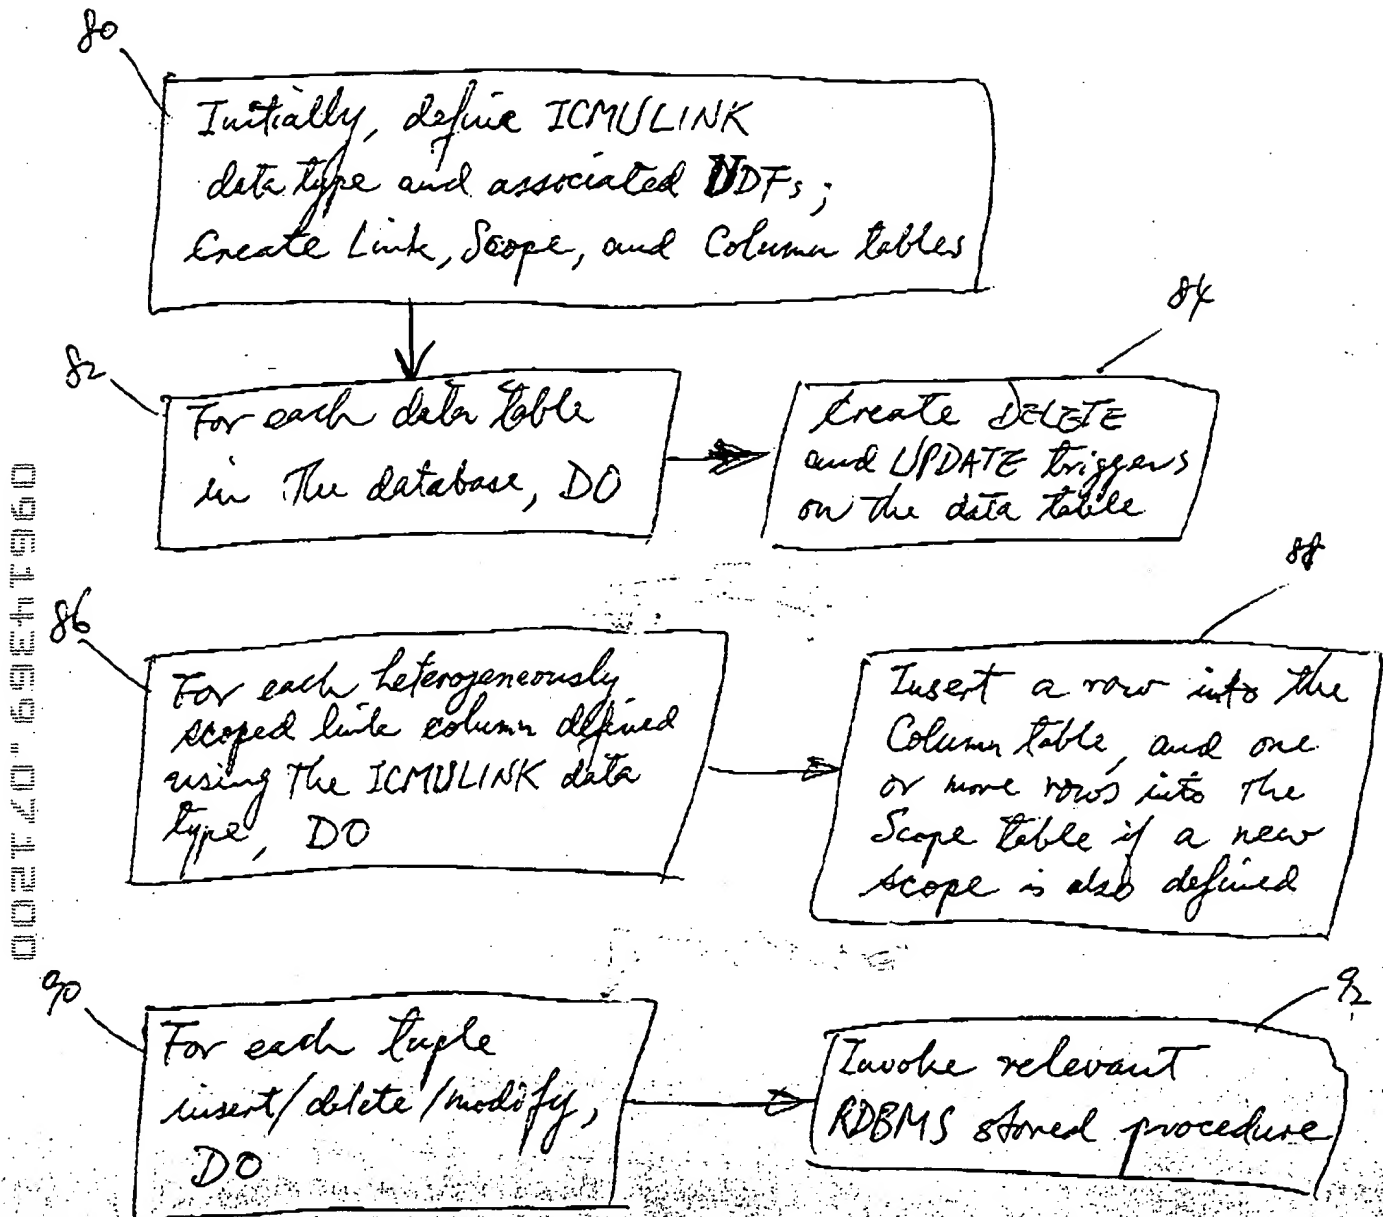 80
Initially, define ICMULINK
data type and associated UDFs;
Create Link, Scope, and Column tables
82
For each data table
in The database, DO
84
Create DELETE
and UPDATE triggers
on the data table
86
For each heterogeneously
scoped link column defined
using The ICMULINK data
type, DO
88
Insert a row into the
Column table, and one
or more rows into the
Scope table if a new
scope is also defined
90
For each tuple
insert/delete/modify,
DO
92
Invoke relevant
RDBMS stored procedure
09614369.071200